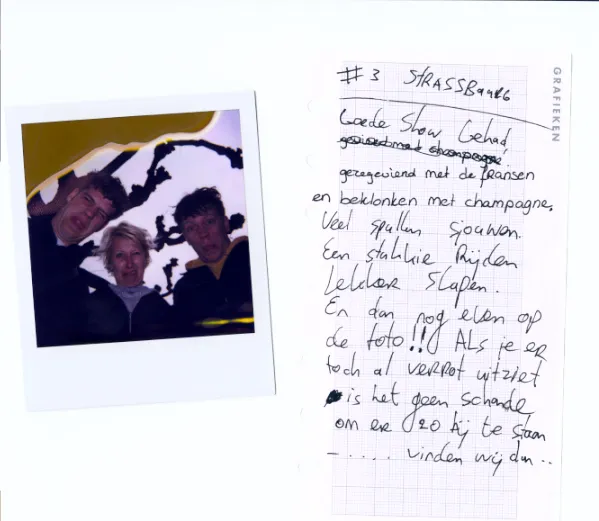 # 3 STRASSBOURG
GRAFIEKEN
Goede Show Gehad
gezegevierd met de fransen
en beklonken met champagne.
Veel spullen sjouwen.
Een stukkie Rijden
Lekker Slapen.
En dan nog even op
de foto!! Als je er
toch al verrot uitziet
is het geen schande
om er zo bij te staan
- .... vinden wij dan ..